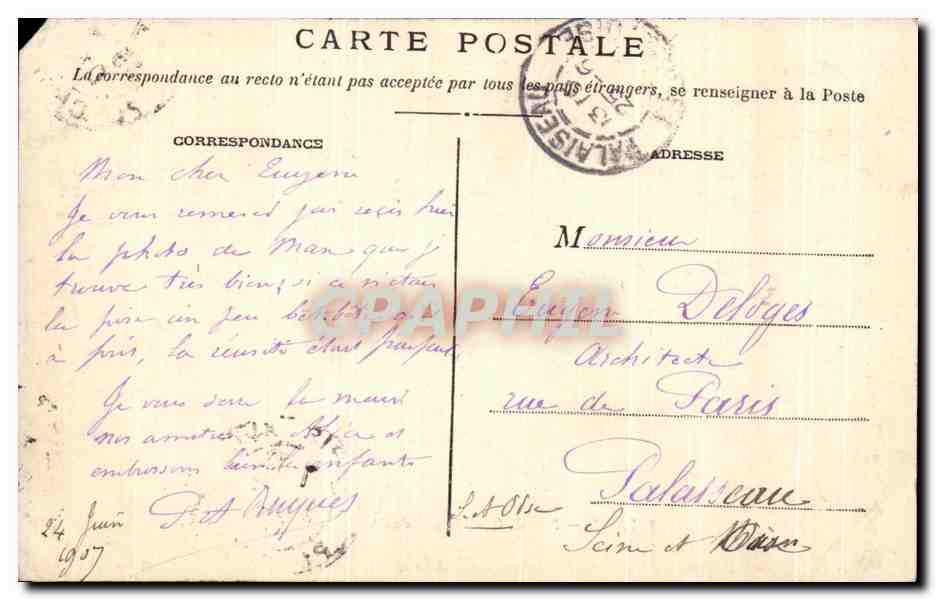 CARTE POSTALE
La correspondance au recto n'étant pas acceptée par tous les pays étrangers, se renseigner à la Poste
PALAISEAU
CORRESPONDANCE
Mon cher Eugène
Je vous remerci j'ai reçu hier
la photo de Man que j
trouve très bien, si ce n'était
la pose un peu
à pris, la réussite était parfait
Je vous serre la main
nos amitiés à Alice et
embrassons les enfants
24 Juin
1907
ADRESSE
Monsieur
Eugène Deloges
Architecte
rue de Paris
Palaiseau
S. et Oise
Seine et
CPAPHIL